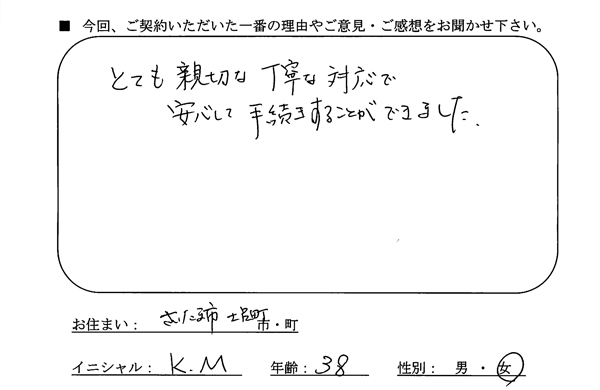 ■ 今回、ご契約いただいた一番の理由やご意見・ご感想をお聞かせ下さい。
とても親切な丁寧な対応で
安心して手続きすることができました.
お住まい： さいたま市 土呂町 市・町
イニシャル： K.M 年齢： 38 性別： 男 ・ 女